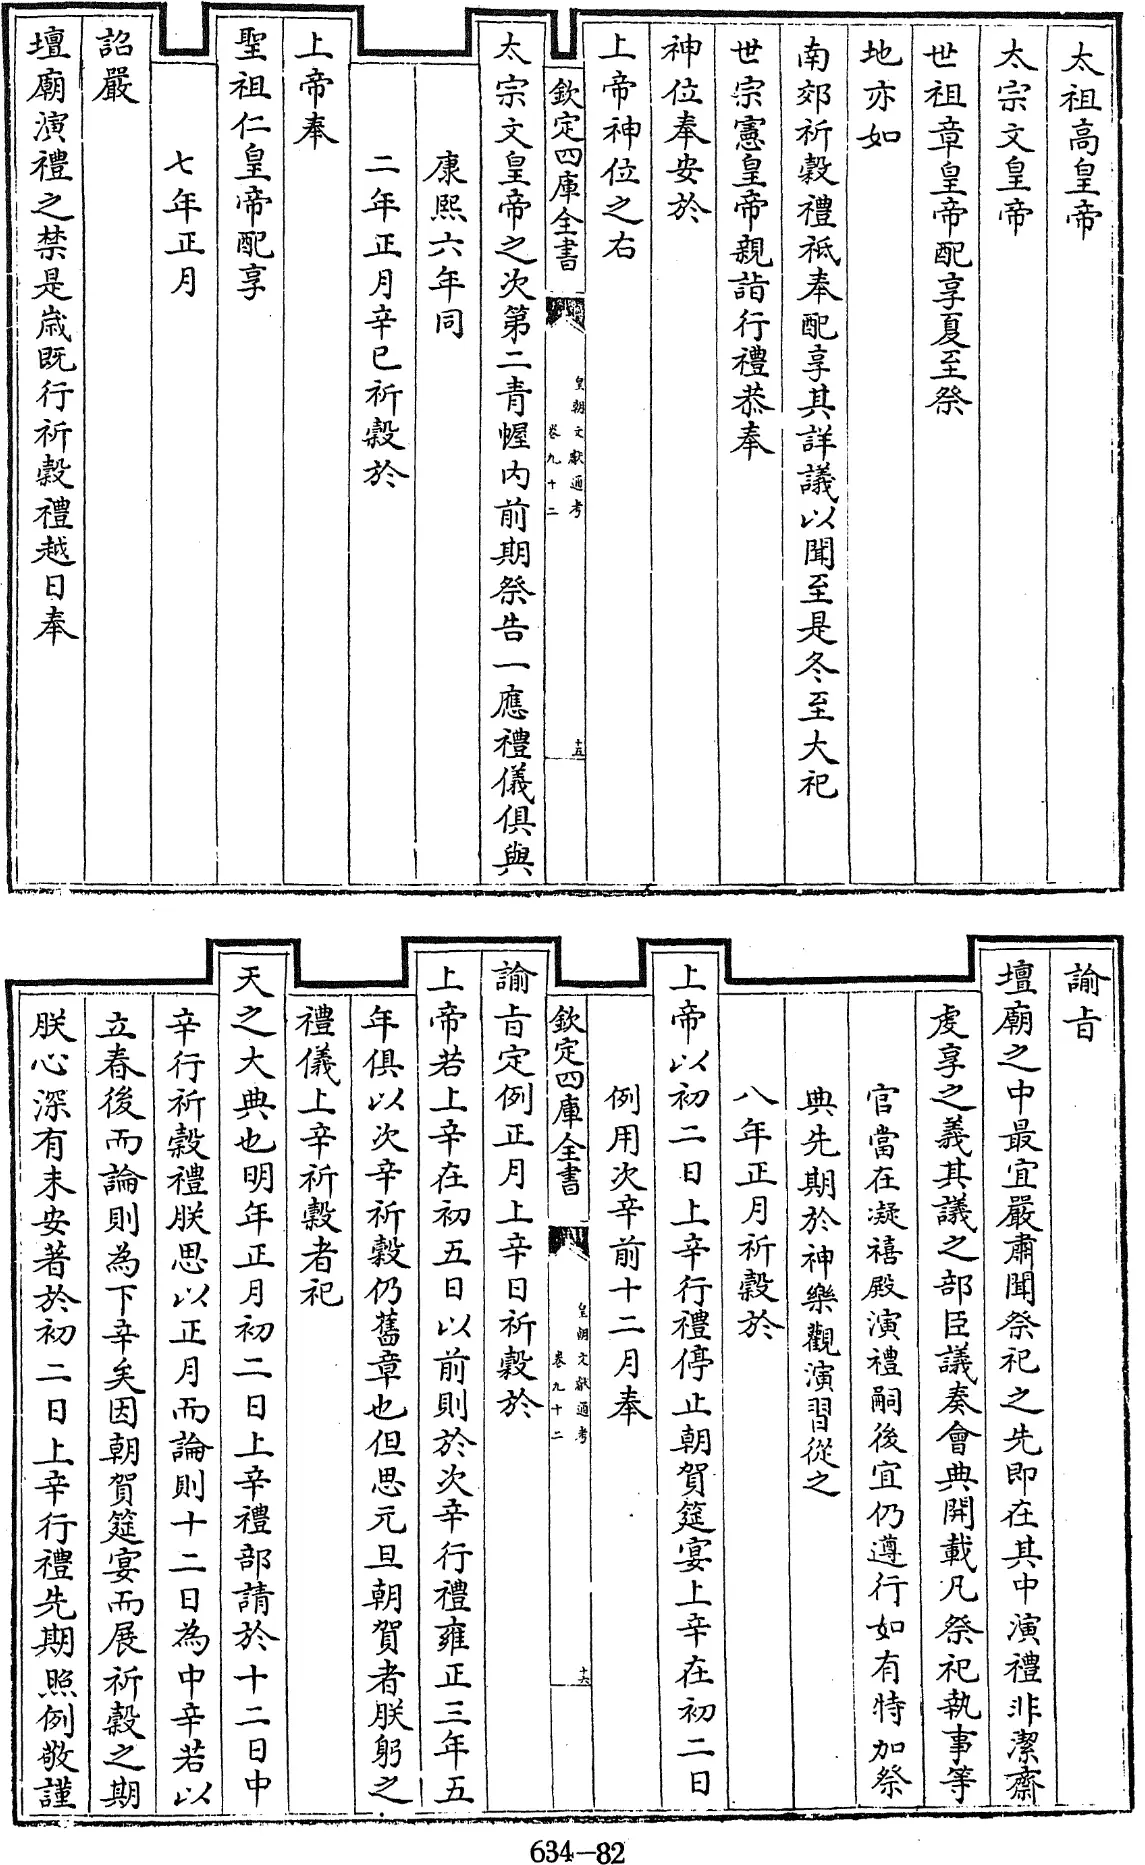 太祖高皇帝
太宗文皇帝
世祖章皇帝配享夏至祭
地亦如
南郊祈穀禮祗奉配享其詳議以聞至是冬至大祀
世宗憲皇帝親詣行禮恭奉
神位奉安於
上帝神位之右
欽定四庫全書
皇朝文獻通考
卷九十二
十五
太宗文皇帝之次第二青幄内前期祭告一應禮儀俱與
康熙六年同
二年正月辛巳祈穀於
上帝奉
聖祖仁皇帝配享
七年正月
詔嚴
壇廟演禮之禁是歲既行祈穀禮越日奉
諭旨
壇廟之中最宜嚴肅聞祭祀之先即在其中演禮非潔齋
虔享之義其議之部臣議奏會典開載凡祭祀執事等
官當在凝禧殿演禮嗣後宜仍遵行如有特加祭
典先期於神樂觀演習從之
八年正月祈穀於
上帝以初二日上辛行禮停止朝賀筵宴上辛在初二日
例用次辛前十二月奉
欽定四庫全書
皇朝文獻通考
卷九十二
十六
諭旨定例正月上辛日祈穀於
上帝若上辛在初五日以前則於次辛行禮雍正三年五
年俱以次辛祈穀仍舊章也但思元旦朝賀者朕躬之
禮儀上辛祈穀者祀
天之大典也明年正月初二日上辛禮部請於十二日中
辛行祈穀禮朕思以正月而論則十二日為中辛若以
立春後而論則為下辛矣因朝賀筵宴而展祈穀之期
朕心深有未安著於初二日上辛行禮先期照例敬謹
634—82